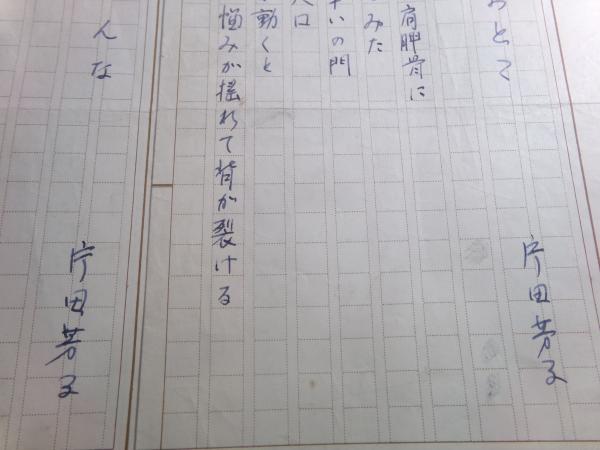 おとこ
片田芳子
肩胛骨に
みた
いの門
入口
動くと
悩みが揺れて背が裂ける
んな
片田芳子